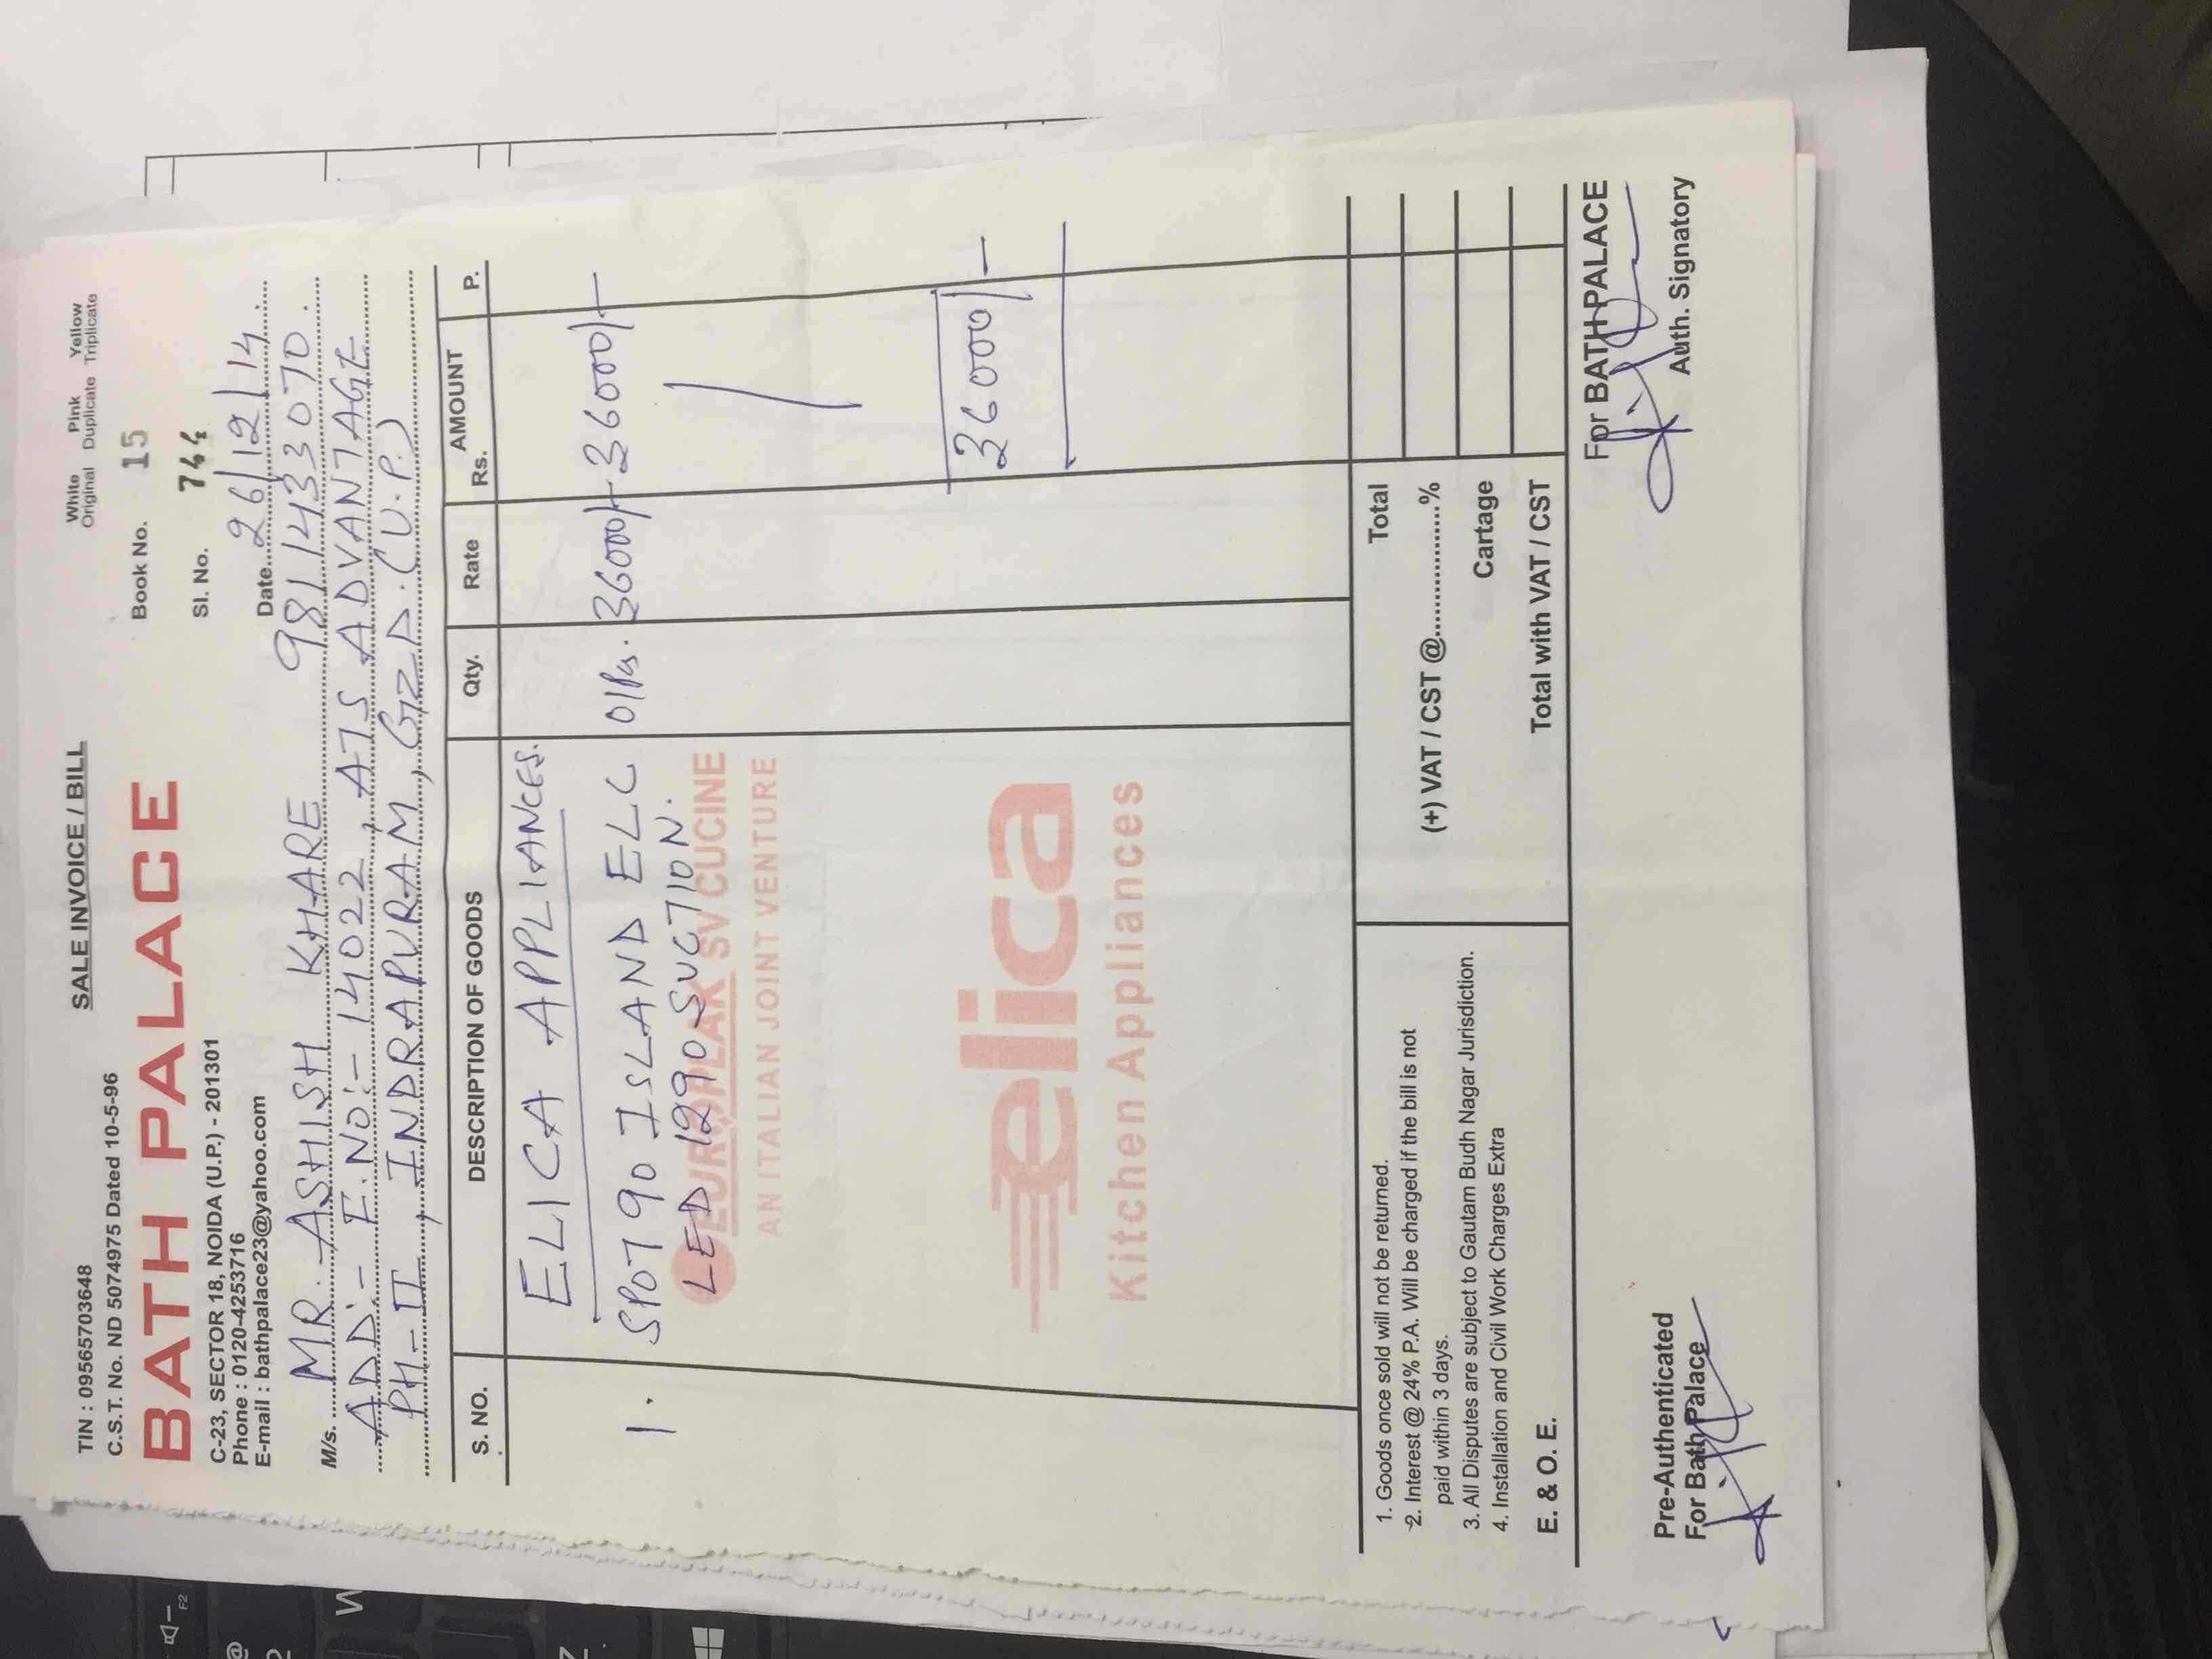 TIN : 09565703648
SALE INVOICE / BILL
White Pink Yellow
Original Duplicate Triplicate
C.S.T. No. ND 5074975 Dated 10-5-96
BATH PALACE
Book No. 15
C-23, SECTOR 18, NOIDA (U.P.) - 201301
Sl. No. 744
Phone : 0120-4253716
E-mail : bathpalace23@yahoo.com
Date 26/12/14
M/s. MR. ASHISH KHARE 9811433070.
ADD:- F.NO:- 14022, ATS ADVANTAGE
PH-II, INDRAPURAM, GZD. (U.P.)
S. NO. DESCRIPTION OF GOODS Qty. Rate AMOUNT Rs. P.
ELICA APPLIANCES.
1. SPOT 90 ISLAND ELC 01Ps. 36000/- 36000/-
LED 1290 SUCTION.
EUROPLAK SV CUCINE
AN ITALIAN JOINT VENTURE
36000/-
elica
Kitchen Appliances
1. Goods once sold will not be returned.
2. Interest @ 24% P.A. Will be charged if the bill is not
paid within 3 days.
3. All Disputes are subject to Gautam Budh Nagar Jurisdiction.
4. Installation and Civil Work Charges Extra
E. & O. E.
Total
(+) VAT / CST @..................%
Cartage
Total with VAT / CST
For BATH PALACE
Auth. Signatory
Pre-Authenticated
For Bath Palace
@
2
W
Z
F2